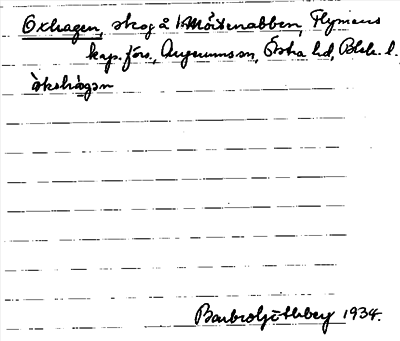 Oxhagen, skog å 1 Mörtenabben, Flymens
kap. förs., Augerums sn, Östra hd, Blek. l.
òkshågan
Barbro Ljótteby 1934.